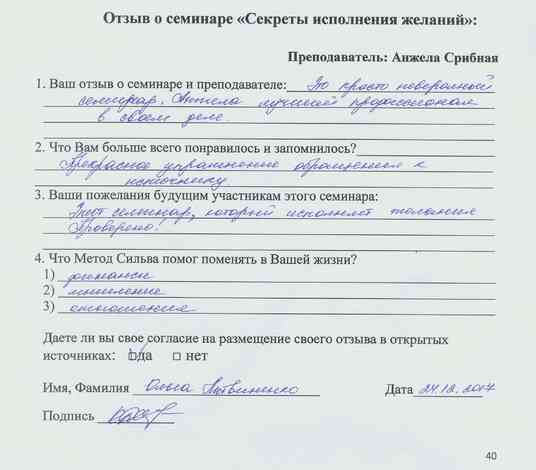 Отзыв о семинаре «Секреты исполнения желаний»:
Преподаватель: Анжела Срибная
1. Ваш отзыв о семинаре и преподавателе: Это просто невероятный
семинар. Анжела лучший профессионал
в своем деле.
2. Что Вам больше всего понравилось и запомнилось?
Прекрасное упражнение обращения к
источнику.
3. Ваши пожелания будущим участникам этого семинара:
семинар, который исполняет желания
Проверено!
4. Что Метод Сильва помог поменять в Вашей жизни?
1) финансы
2) мышление
3) отношения
Даете ли вы свое согласие на размещение своего отзыва в открытых
источниках: □да □ нет
Имя, Фамилия Ольга Литвиненко Дата 24.12.2017
Подпись
40